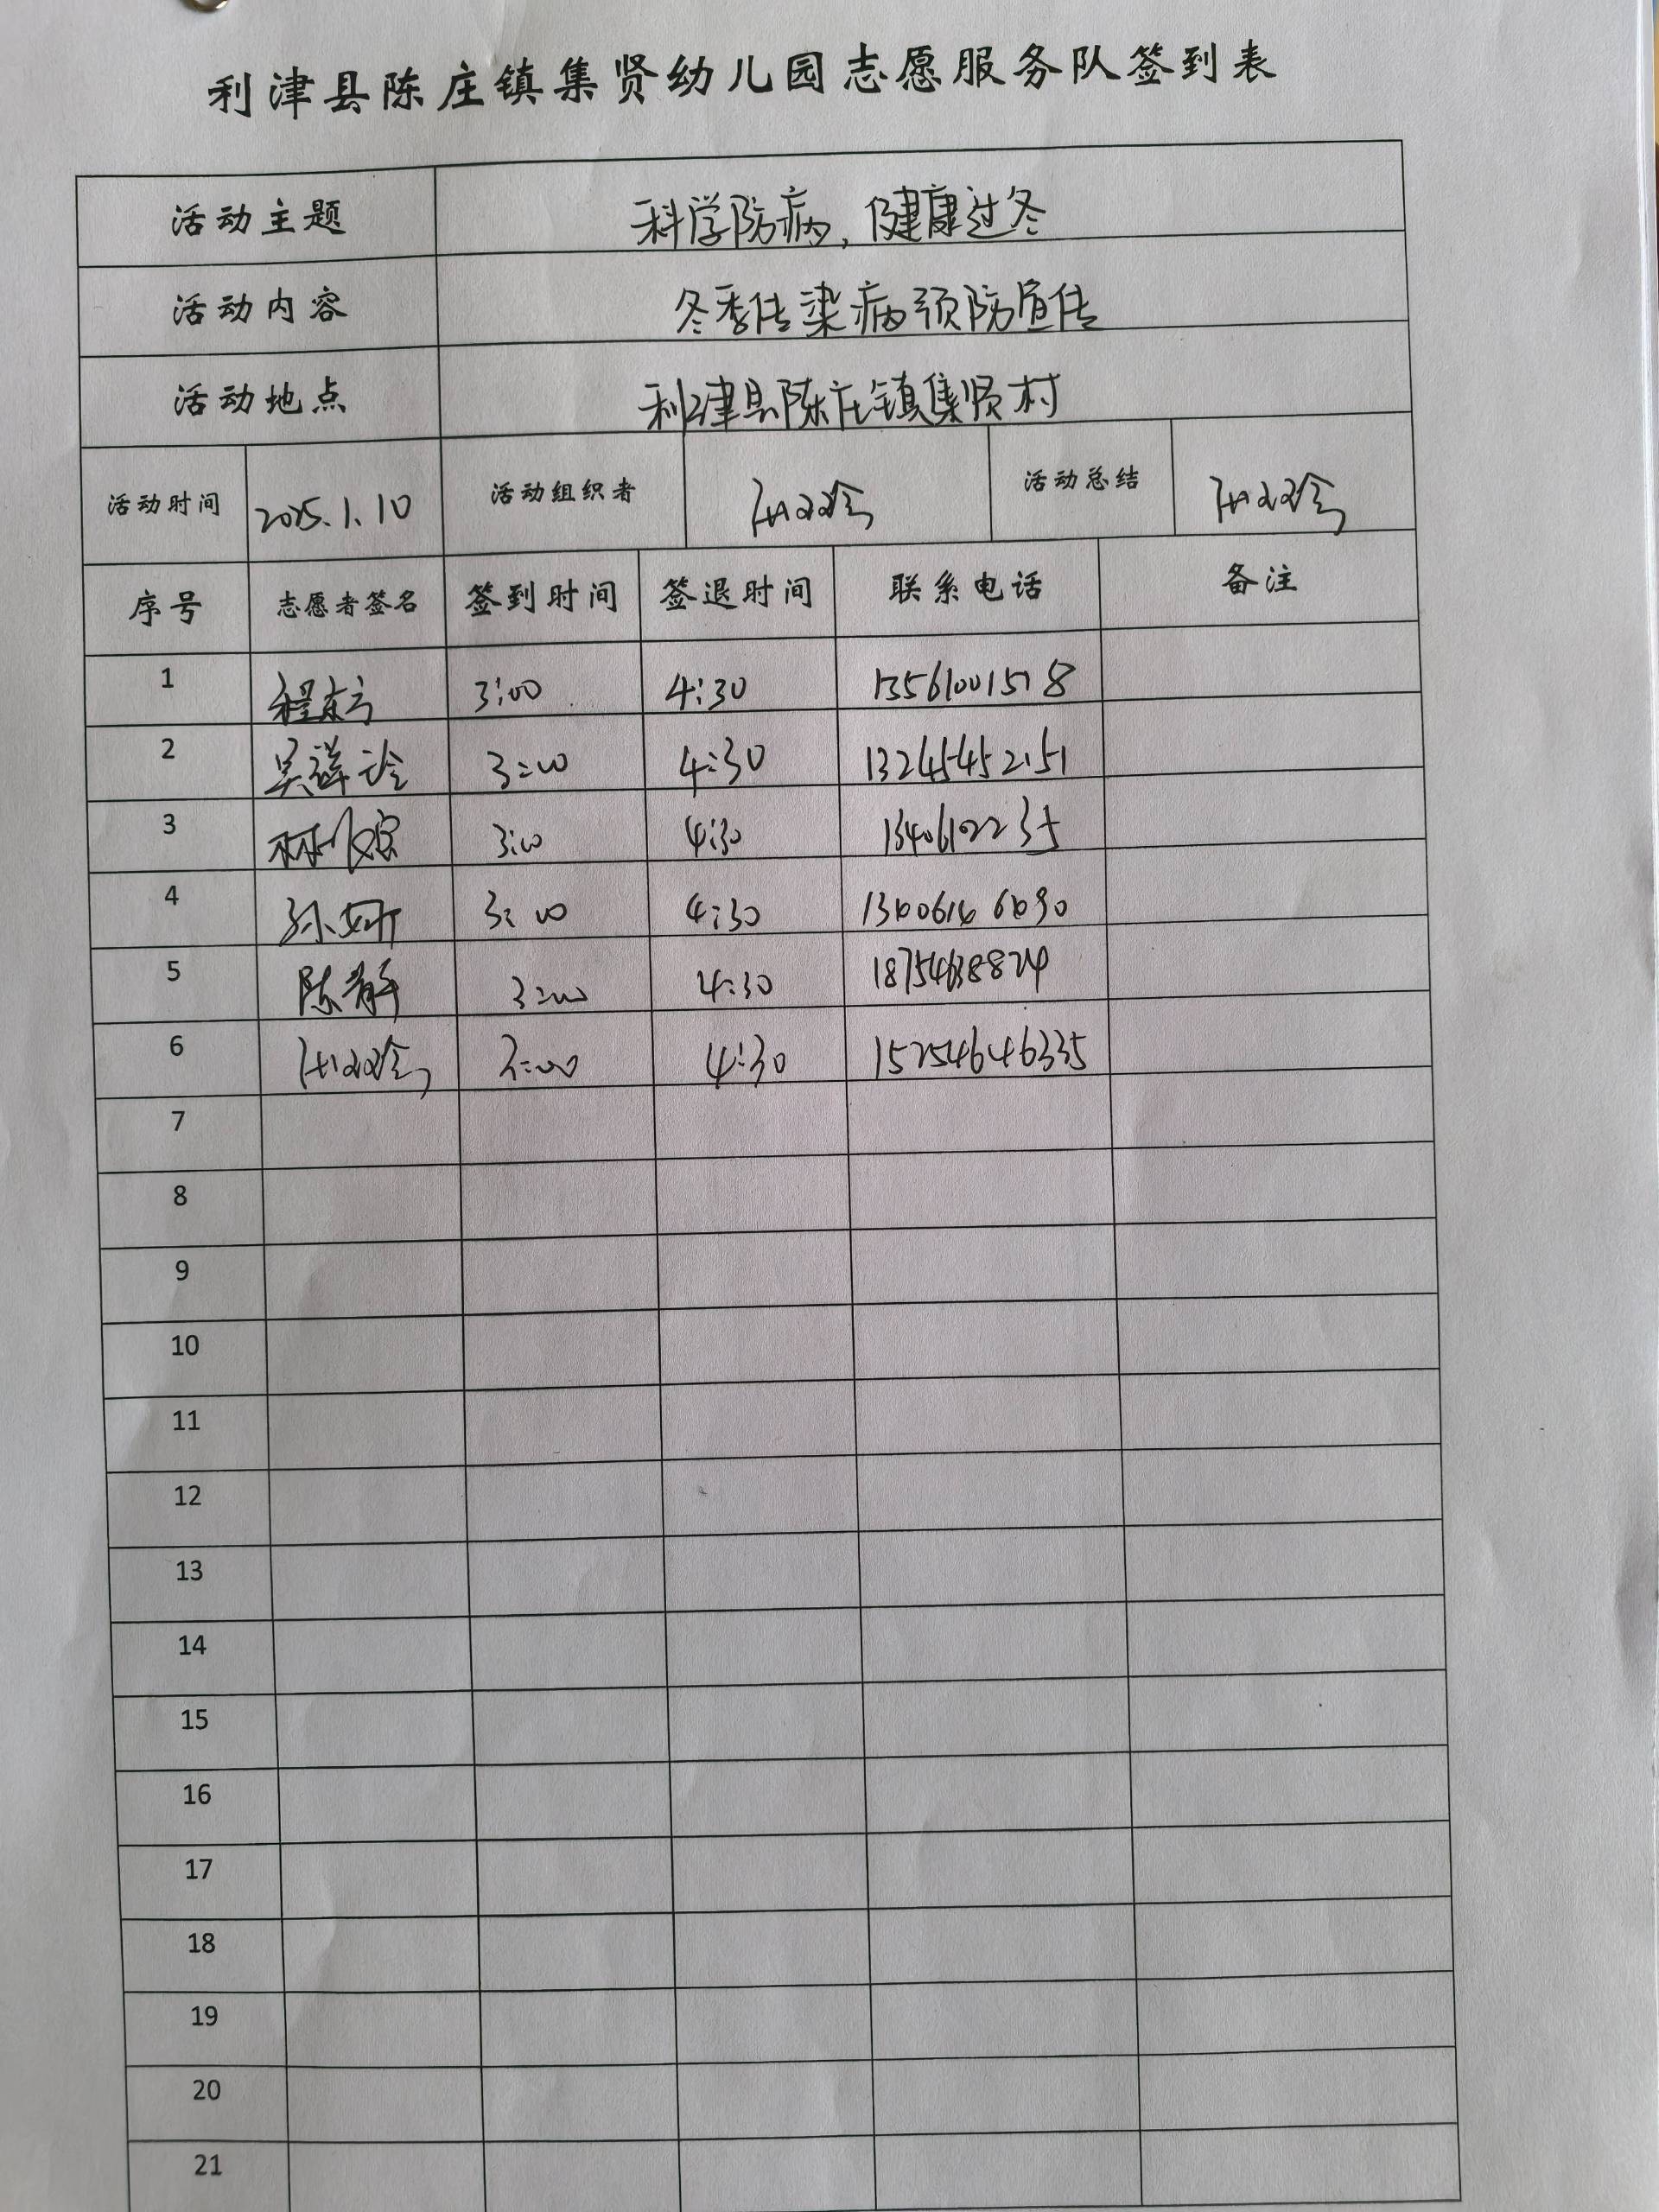 利津县陈庄镇集贤幼儿园志愿服务队签到表
活动主题 科学防病,健康过冬
活动内容 冬季传染病预防宣传
活动地点 利津县陈庄镇集贤村
活动时间 2025.1.10 活动组织者 活动总结
序号 志愿者签名 签到时间 签退时间 联系电话 备注
1 3:00 4:30
2 吴祥玲 3:00 4:30 13245452151
3 3:00 4:30
4 孙妍 3:00 4:30
5 陈静 3:00 4:30
6 3:00 4:30 15254646335
7
8
9
10
11
12
13
14
15
16
17
18
19
20
21